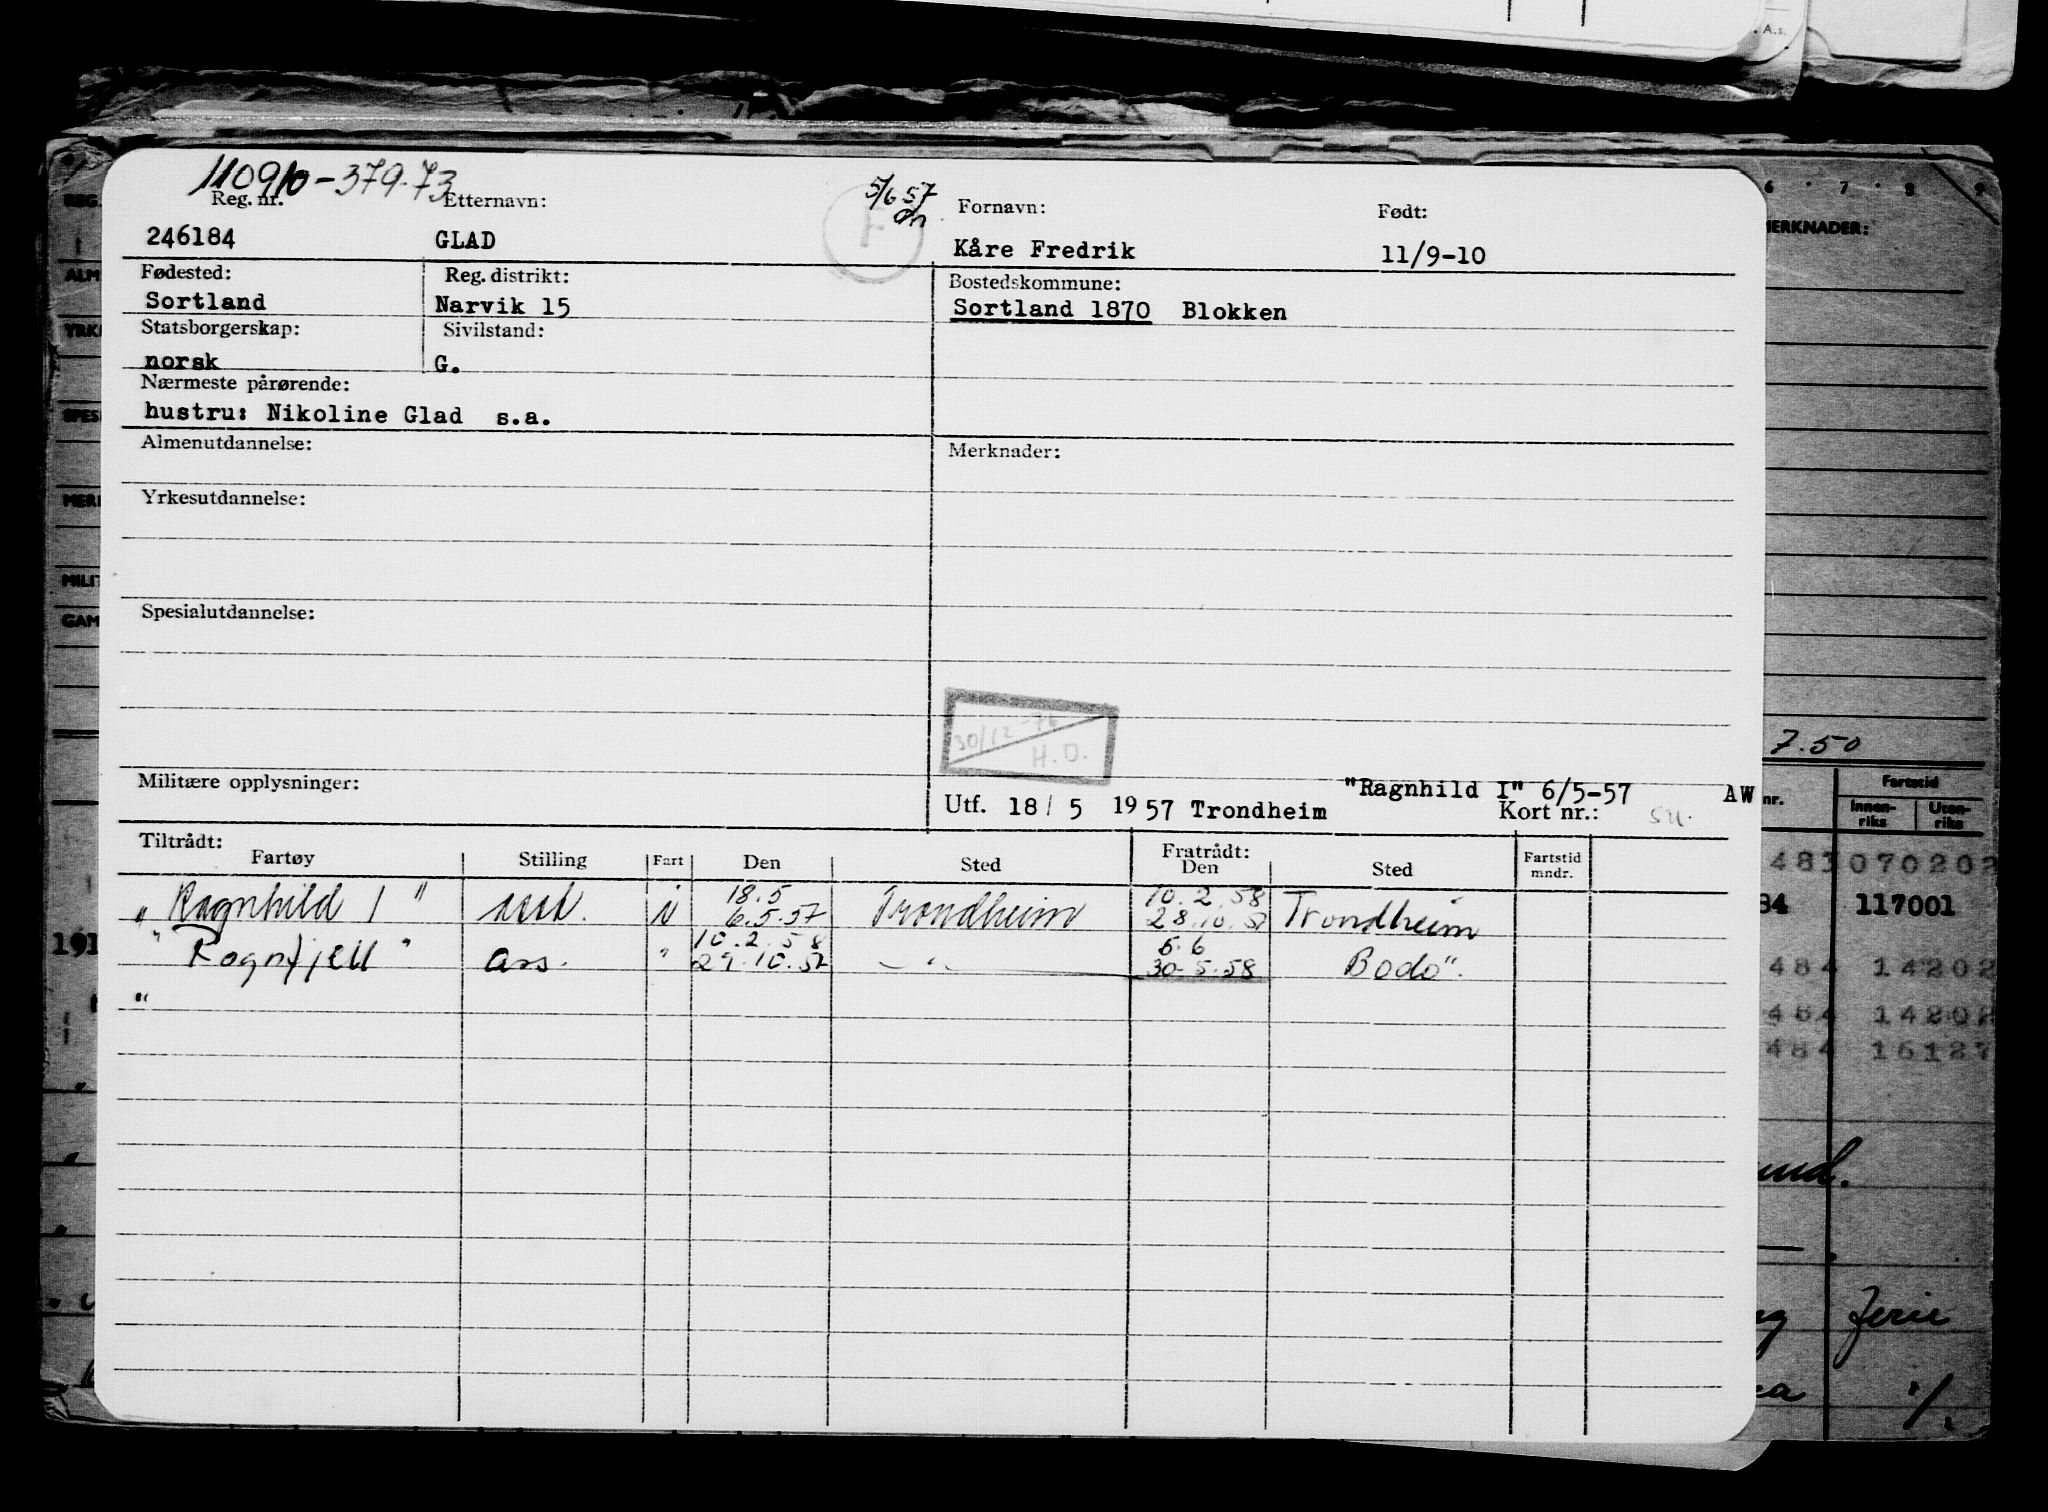 110910-379.73
Reg. nr. Etternavn: 5/6 57 Fornavn: Født:
246184 GLAD F Kåre Fredrik 11/9-10
Fødested: Reg. distrikt: Bostedskommune:
Sortland Narvik 15 Sortland 1870 Blokken
Statsborgerskap: Sivilstand:
norsk G.
Nærmeste pårørende:
hustru: Nikoline Glad s.a.
Almenutdannelse: Merknader:
Yrkesutdannelse:
Spesialutdannelse:
30/12-76
H.O.
Militære opplysninger: "Ragnhild I" 6/5-57 AW
Utf. 18/ 5 1957 Trondheim Kort nr.:
Tiltrådt: Fratrådt:
Fartøy Stilling Fart Den Sted Den Sted Fartstid mndr.
18.5 10.2.58
"Ragnhild I" i 6.5.57 Trondheim 28.10.57 Trondheim
10.2.58 5.6
"Ragnfjell" ass. " 29.10.57 — " — 30.5.58 Bodø".
"
6 7 8 9
MERKNADER:
7.50
nr. Fartstid
Innen-riks Uten-riks
483070202
84 117001
484 14202
484 14202
484 16127
REG.
ALM
YRK
SPES
MERK
MILIT
GAM
191
Ferie
A.s.